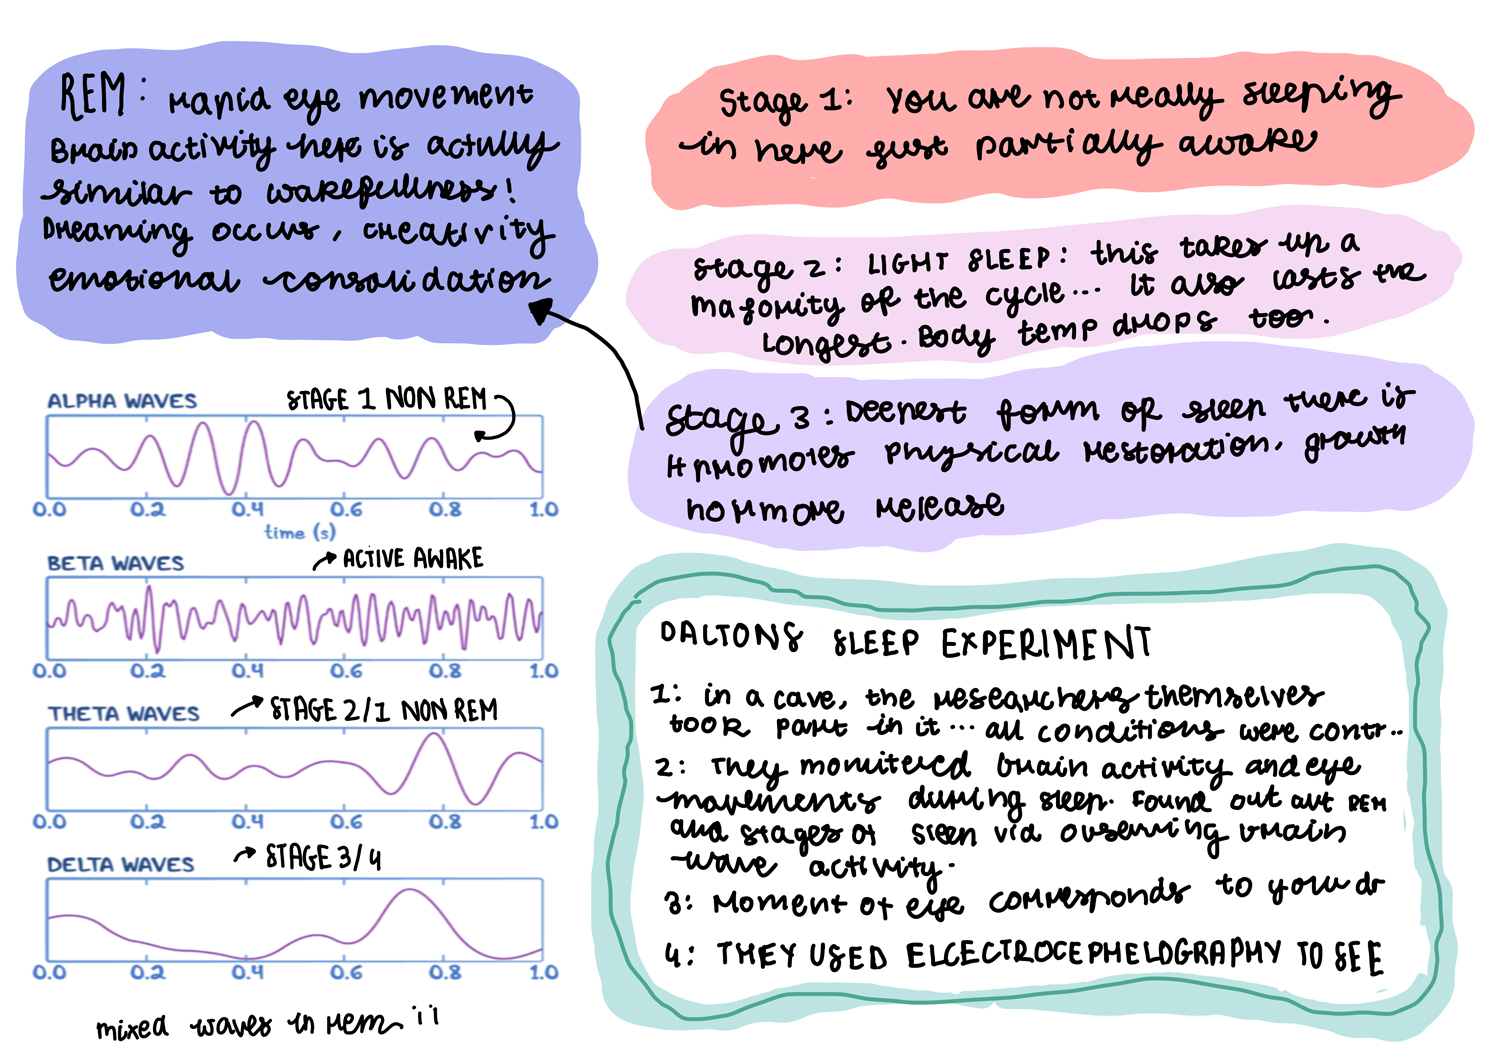 REM: rapid eye movement
Brain activity here is actully
similar to wakefullness!
Dreaming occurs, creativity
emotional consolidation
Stage 1: you are not really sleeping
in here just partially awake
Stage 2: LIGHT SLEEP: this takes up a
majority of the cycle... It also lasts the
longest. Body temp drops too.
Stage 3: Deepest form of sleep there is
It promotes physical restoration, growth
hormone release
ALPHA WAVES
STAGE 1 NON REM
0.0 0.2 0.4 0.6 0.8 1.0
time (s)
BETA WAVES
ACTIVE AWAKE
0.0 0.2 0.4 0.6 0.8 1.0
THETA WAVES
STAGE 2/1 NON REM
0.0 0.2 0.4 0.6 0.8 1.0
DELTA WAVES
STAGE 3/4
0.0 0.2 0.4 0.6 0.8 1.0
mixed waves in rem
DALTONS SLEEP EXPERIMENT
1: in a cave, the researchers themselves
took part in it... all conditions were contr..
2: They monitered brain activity and eye
movements during sleep. Found out REM
and stages of sleep via observing brain
wave activity.
3: Moment of eye corresponds to your dr
4: THEY USED ELCECTROCEPHELOGRAPHY TO SEE